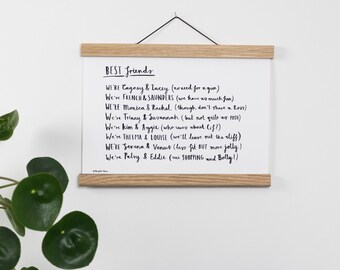 BEST friends
WE'RE Cagney & Lacey (no need for a gun)
We're FRENCH & SAUNDERS (we have as much fun)
WE'RE Monica & Rachel (though don't share a Ross)
We're Trinny & Susannah (but not quite as posh)
We're Kim & Aggie (who cares about Cif?)
We're THELMA & LOUISE (we'll leave out the cliff)
WE'RE Serena & Venus (less fit BUT more jolly)
We're Patsy & Eddie (our SHOPPING and Bolly!)